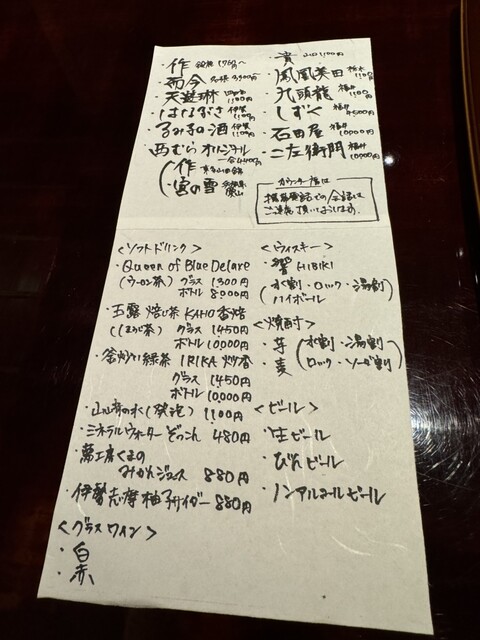 ・作 鈴鹿 1760円〜
・而今 名張 3,300円
・天遊琳 四日市 1100円
・はなるざき 伊賀 1100円
・るみ子の酒 伊賀 1100円
西むらオリジナル
一合4400円
・作
・宮の雪
・貴 山口1100円
・鳳凰美田 栃木 1100円
・九頭龍 福井 1100円
・しずく 福井 4500円
・石田屋 福井 10000円
・二左衛門 福井 10000円
カウンター席は
携帯電話での会話は
ご遠慮頂いております。
<ソフトドリンク>
・Queen of Blue Delare
(ウーロン茶) グラス 1,300円
ボトル 8,000円
・玉露 焙じ茶 KAHO 香焙
(ほうじ茶) グラス 1,450円
ボトル 10,000円
・釜炒り緑茶 IRIKA 炒香
グラス 1,450円
ボトル 10,000円
・山崎の水(発泡) 1100円
・ミネラルウォーター ぞっこん 480円
・萬工房くまの
みかんジュース 880円
・伊勢志摩柚子サイダー 880円
<グラスワイン>
・白
・赤
<ウィスキー>
・響 HIBIKI
(水割・ロック・湯割
ハイボール)
<焼酎>
・芋 (水割・湯割
・麦 ロック・ソーダ割)
<ビール>
・生ビール
・びんビール
・ノンアルコールビール